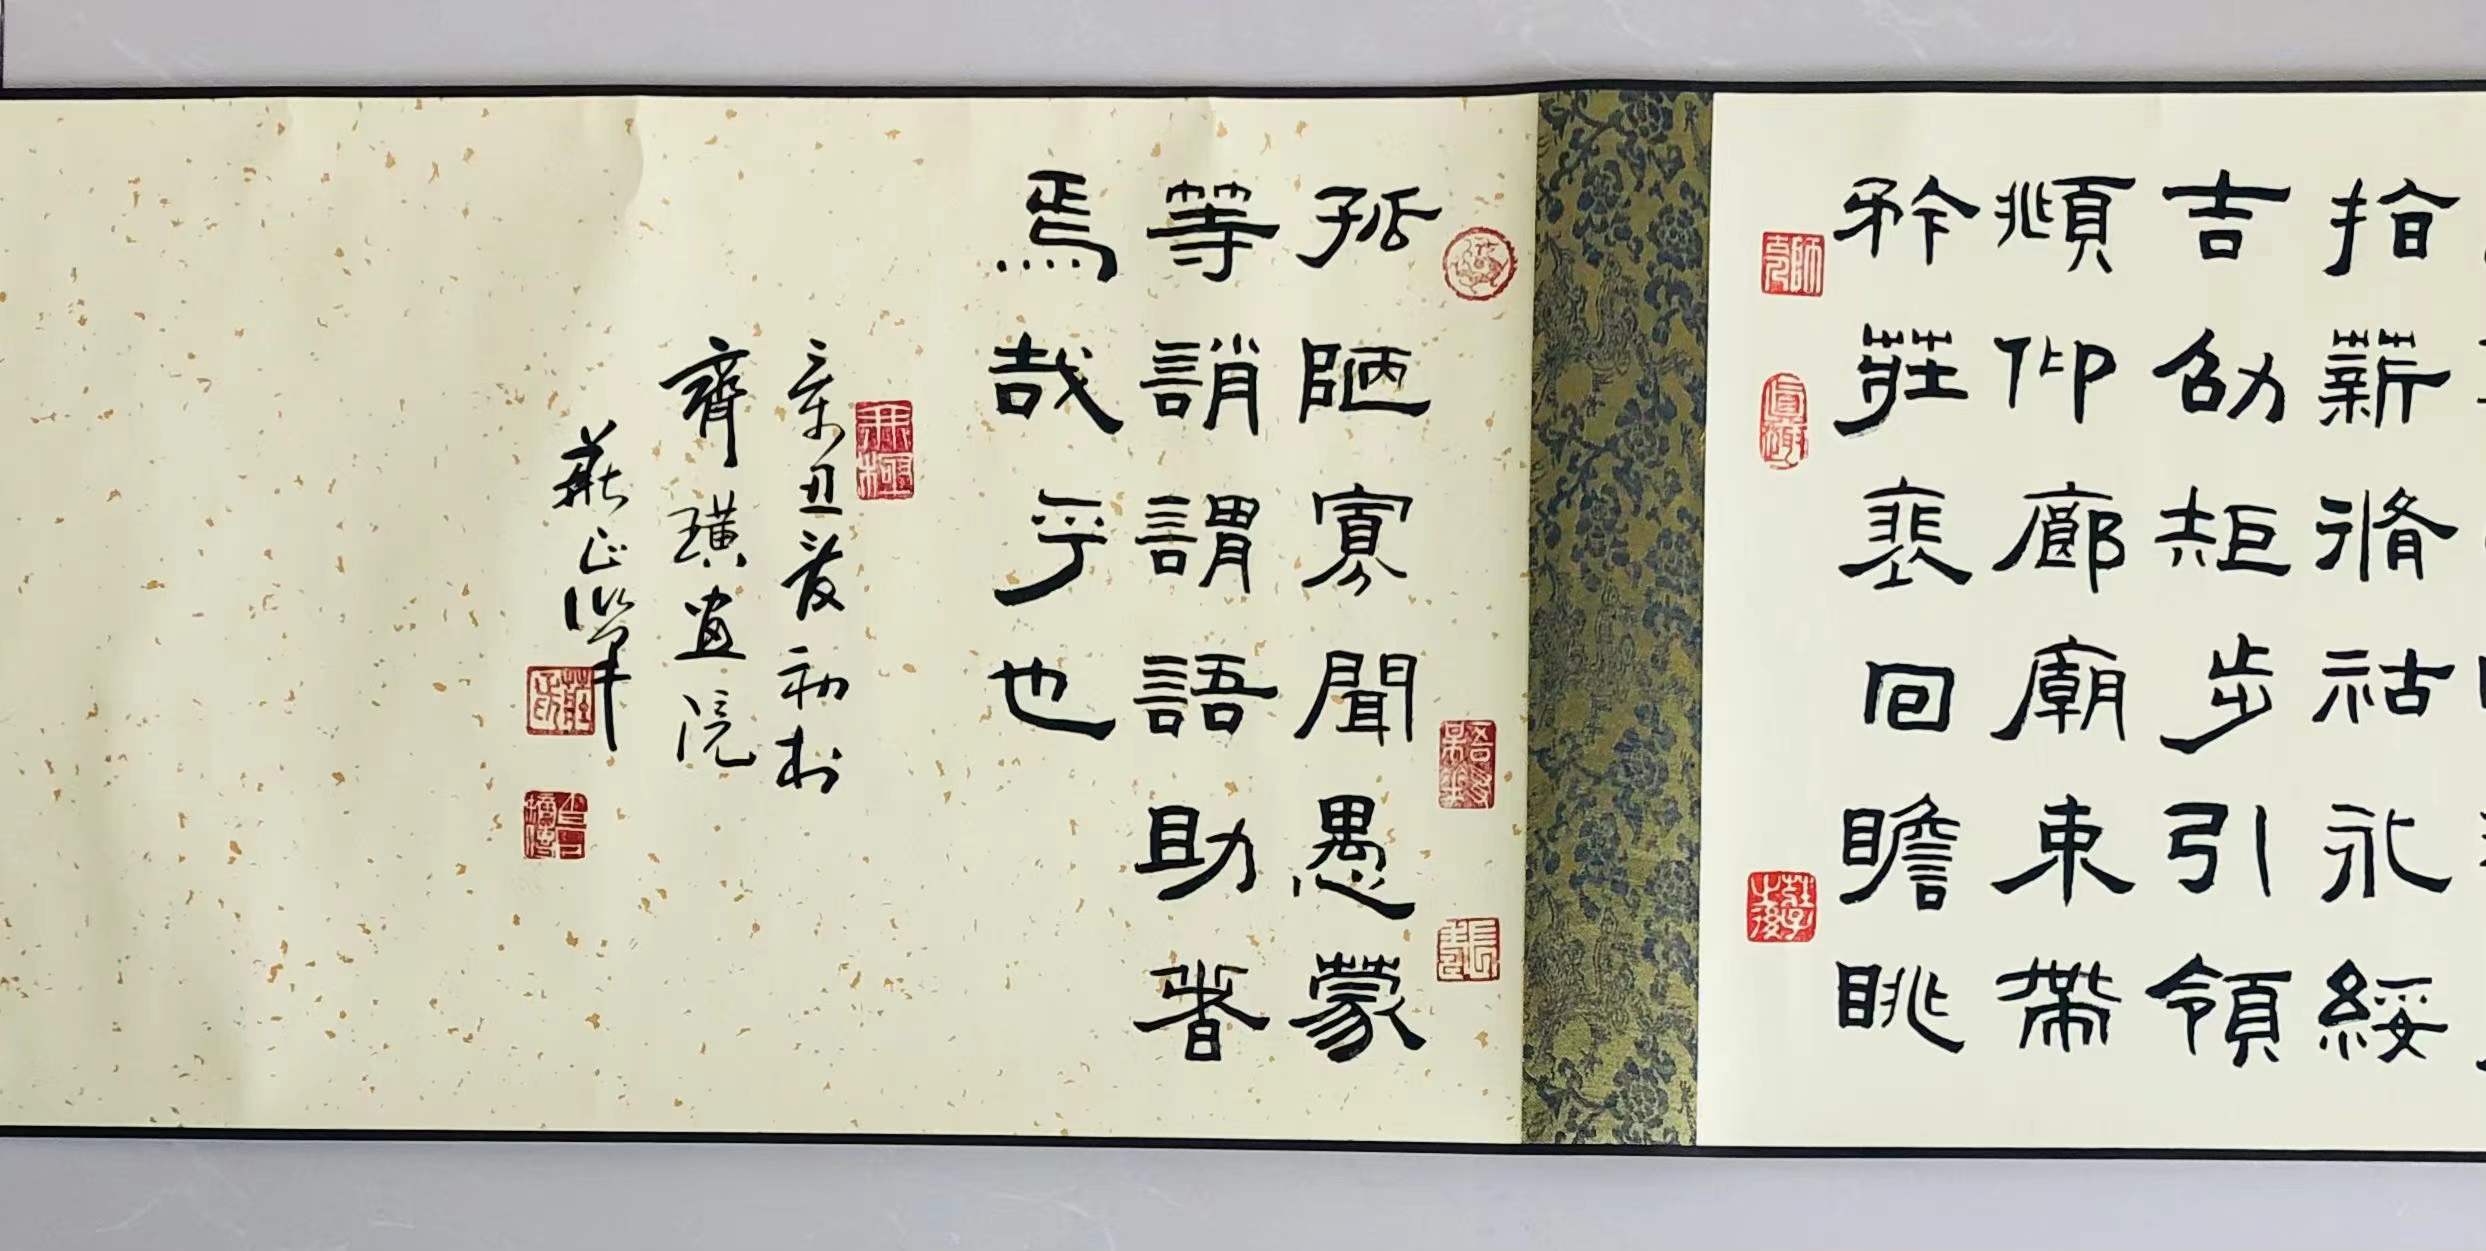 指薪脩祜永綏
吉劭矩步引領
頫仰廊廟束帶
矜莊裴回瞻眺
孤陋寡聞愚蒙
等誚謂語助者
焉哉乎也
辛丑夏初於
齊璜畫院